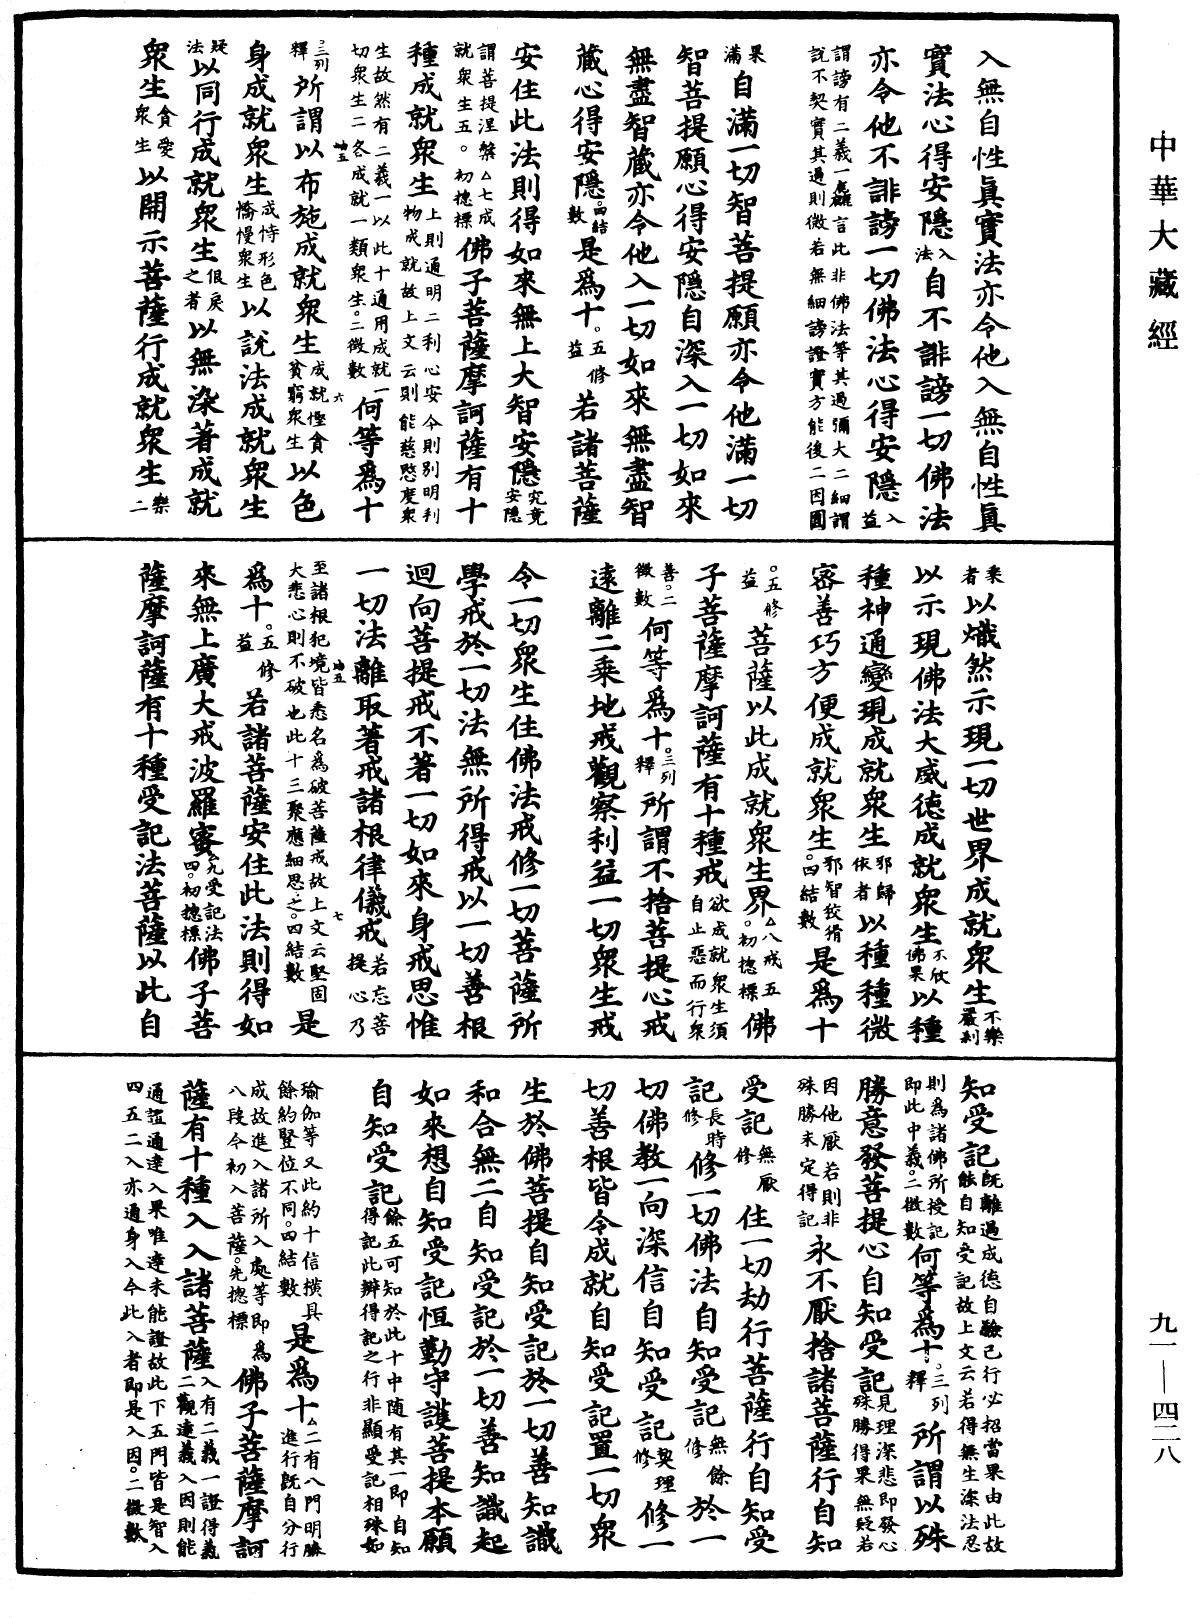 中華大藏經
入無自性真實法亦令他入無自性真
實法心得安隱入法自不誹謗一切佛法
亦令他不誹謗一切佛法心得安隱入益
謂謗有二義一麤言此非佛法等其過彌大二細謂
說不契實其過則微若無細謗證實方能後二因圓
果滿自滿一切智菩提願亦令他滿一切
智菩提願心得安隱自深入一切如來
無盡智藏亦令他入一切如來無盡智
藏心得安隱。四結數是為十。五修益若諸菩薩
安住此法則得如來無上大智安隱究竟安隱
謂菩提涅槃△七成就眾生五。初總標佛子菩薩摩訶薩有十
種成就眾生上則通明二利心安今則別明利物成就故上文云則能慈愍度眾
生故然有二義一以此十通用成就一切眾生二各成就一類眾生。二徵數何等為十
。三列釋所謂以布施成就眾生成就慳貪貧窮眾生以色
身成就眾生成恃形色憍慢眾生以說法成就眾生
疑法以同行成就眾生佷戾之者以無染著成就
眾生貪愛眾生以開示菩薩行成就眾生樂二
乘者以熾然示現一切世界成就眾生不樂嚴剎
以示現佛法大威德成就眾生不欣佛果以種
種神通變現成就眾生邪歸依者以種種微
密善巧方便成就眾生邪智狡猾。四結數是為十
。五修益菩薩以此成就眾生界△八戒五。初總標佛
子菩薩摩訶薩有十種戒欲成就眾生須自止惡而行眾
善。二徵數何等為十。三列釋所謂不捨菩提心戒
遠離二乘地戒觀察利益一切眾生戒
令一切眾生住佛法戒修一切菩薩所
學戒於一切法無所得戒以一切善根
迴向菩提戒不著一切如來身戒思惟
一切法離取著戒諸根律儀戒若忘菩提心乃
至諸根犯境皆悉名為破菩薩戒故上文云堅固大悲心則不破也此十三聚應細思之。四結數是
為十。五修益若諸菩薩安住此法則得如
來無上廣大戒波羅蜜△九受記法四。初總標佛子菩
薩摩訶薩有十種受記法菩薩以此自
知受記既離過成德自驗己行必招當果由此故能自知受記故上文云若得無生深法忍
則為諸佛所授記即此中義。二徵數何等為十。三列釋所謂以殊
勝意發菩提心自知受記見理深悲即發心殊勝得果無疑若
因他厭若則非殊勝未定得記永不厭捨諸菩薩行自知
受記無厭修住一切劫行菩薩行自知受
記長時修修一切佛法自知受記無餘修於一
切佛教一向深信自知受記契理修修一
切善根皆令成就自知受記置一切眾
生於佛菩提自知受記於一切善知識
和合無二自知受記於一切善知識起
如來想自知受記恒勤守護菩提本願
自知受記餘五可知於此十中隨有其一即自知得記此辯得記之行非顯受記相殊如
瑜伽等又此約十信橫具餘約豎位不同。四結數是為十△二有八門明勝進行既自分行
成故進入諸所入處等即為八段今初入菩薩。先總標佛子菩薩摩訶
薩有十種入入諸菩薩入有二義一證得義二觀達義入因則能
通證通達入果唯達未能證故此下五門皆是智入四五二入亦通身入今此入者即是入因。二徵數
九一—四二八